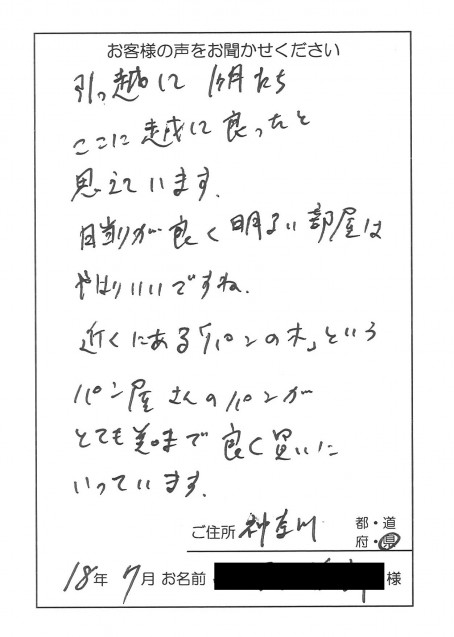 お客様の声をお聞かせください
引っ越して 1ヶ月たち
ここに越して良ったと
思えています.
日当りが良く明るい部屋は
やはりいいですね.
近くにある「パンの木」という
パン屋さんのパンが
とても美味で良く買いに
いっています.
ご住所 神奈川 都・道
府・県
18年 7月 お名前 様